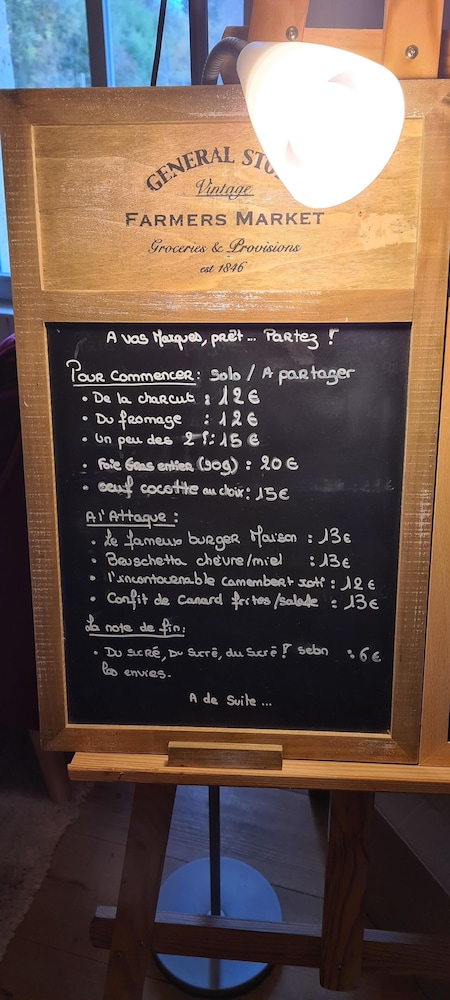 GENERAL STO
Vintage
FARMERS MARKET
Groceries & Provisions
est 1846
A vos Marques, prêt... Partez !
Pour commencer : Solo / A partager
• De la charcut : 12€
• Du fromage : 12€
• Un peu des 2 !: 15€
• Foie Gras entier (90g) : 20€
• oeuf cocotte au choix : 15€
A l'Attaque :
• Le fameux burger Maison : 13€
• Bruschetta chèvre/miel : 13€
• l'incontournable camembert roti : 12€
• Confit de Canard frites/salade : 13€
La note de fin :
• Du sucré, Du sucré, du sucré ! selon : 6€
les envies.
A de suite...